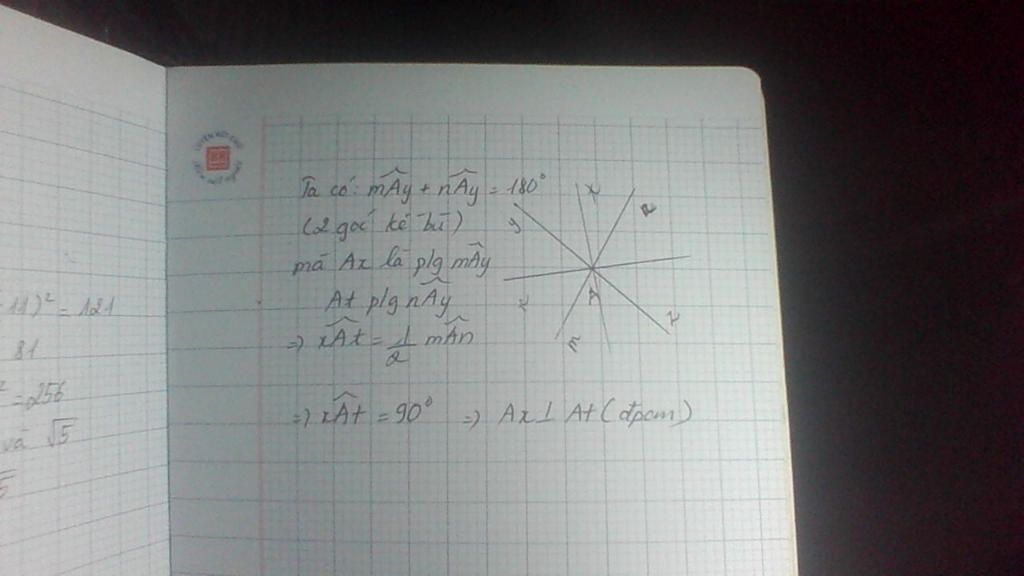 Ta có: mÂy + nÂy = 180°
(2 góc kề bù)
mà Ax là p/g mÂy
At p/g nÂy
=> xÂt = 1/2 mÂn
=> xÂt = 90° => Ax ⊥ At (đpcm)
y
A
z
m
11)² = 121
81
² = 256
và √5